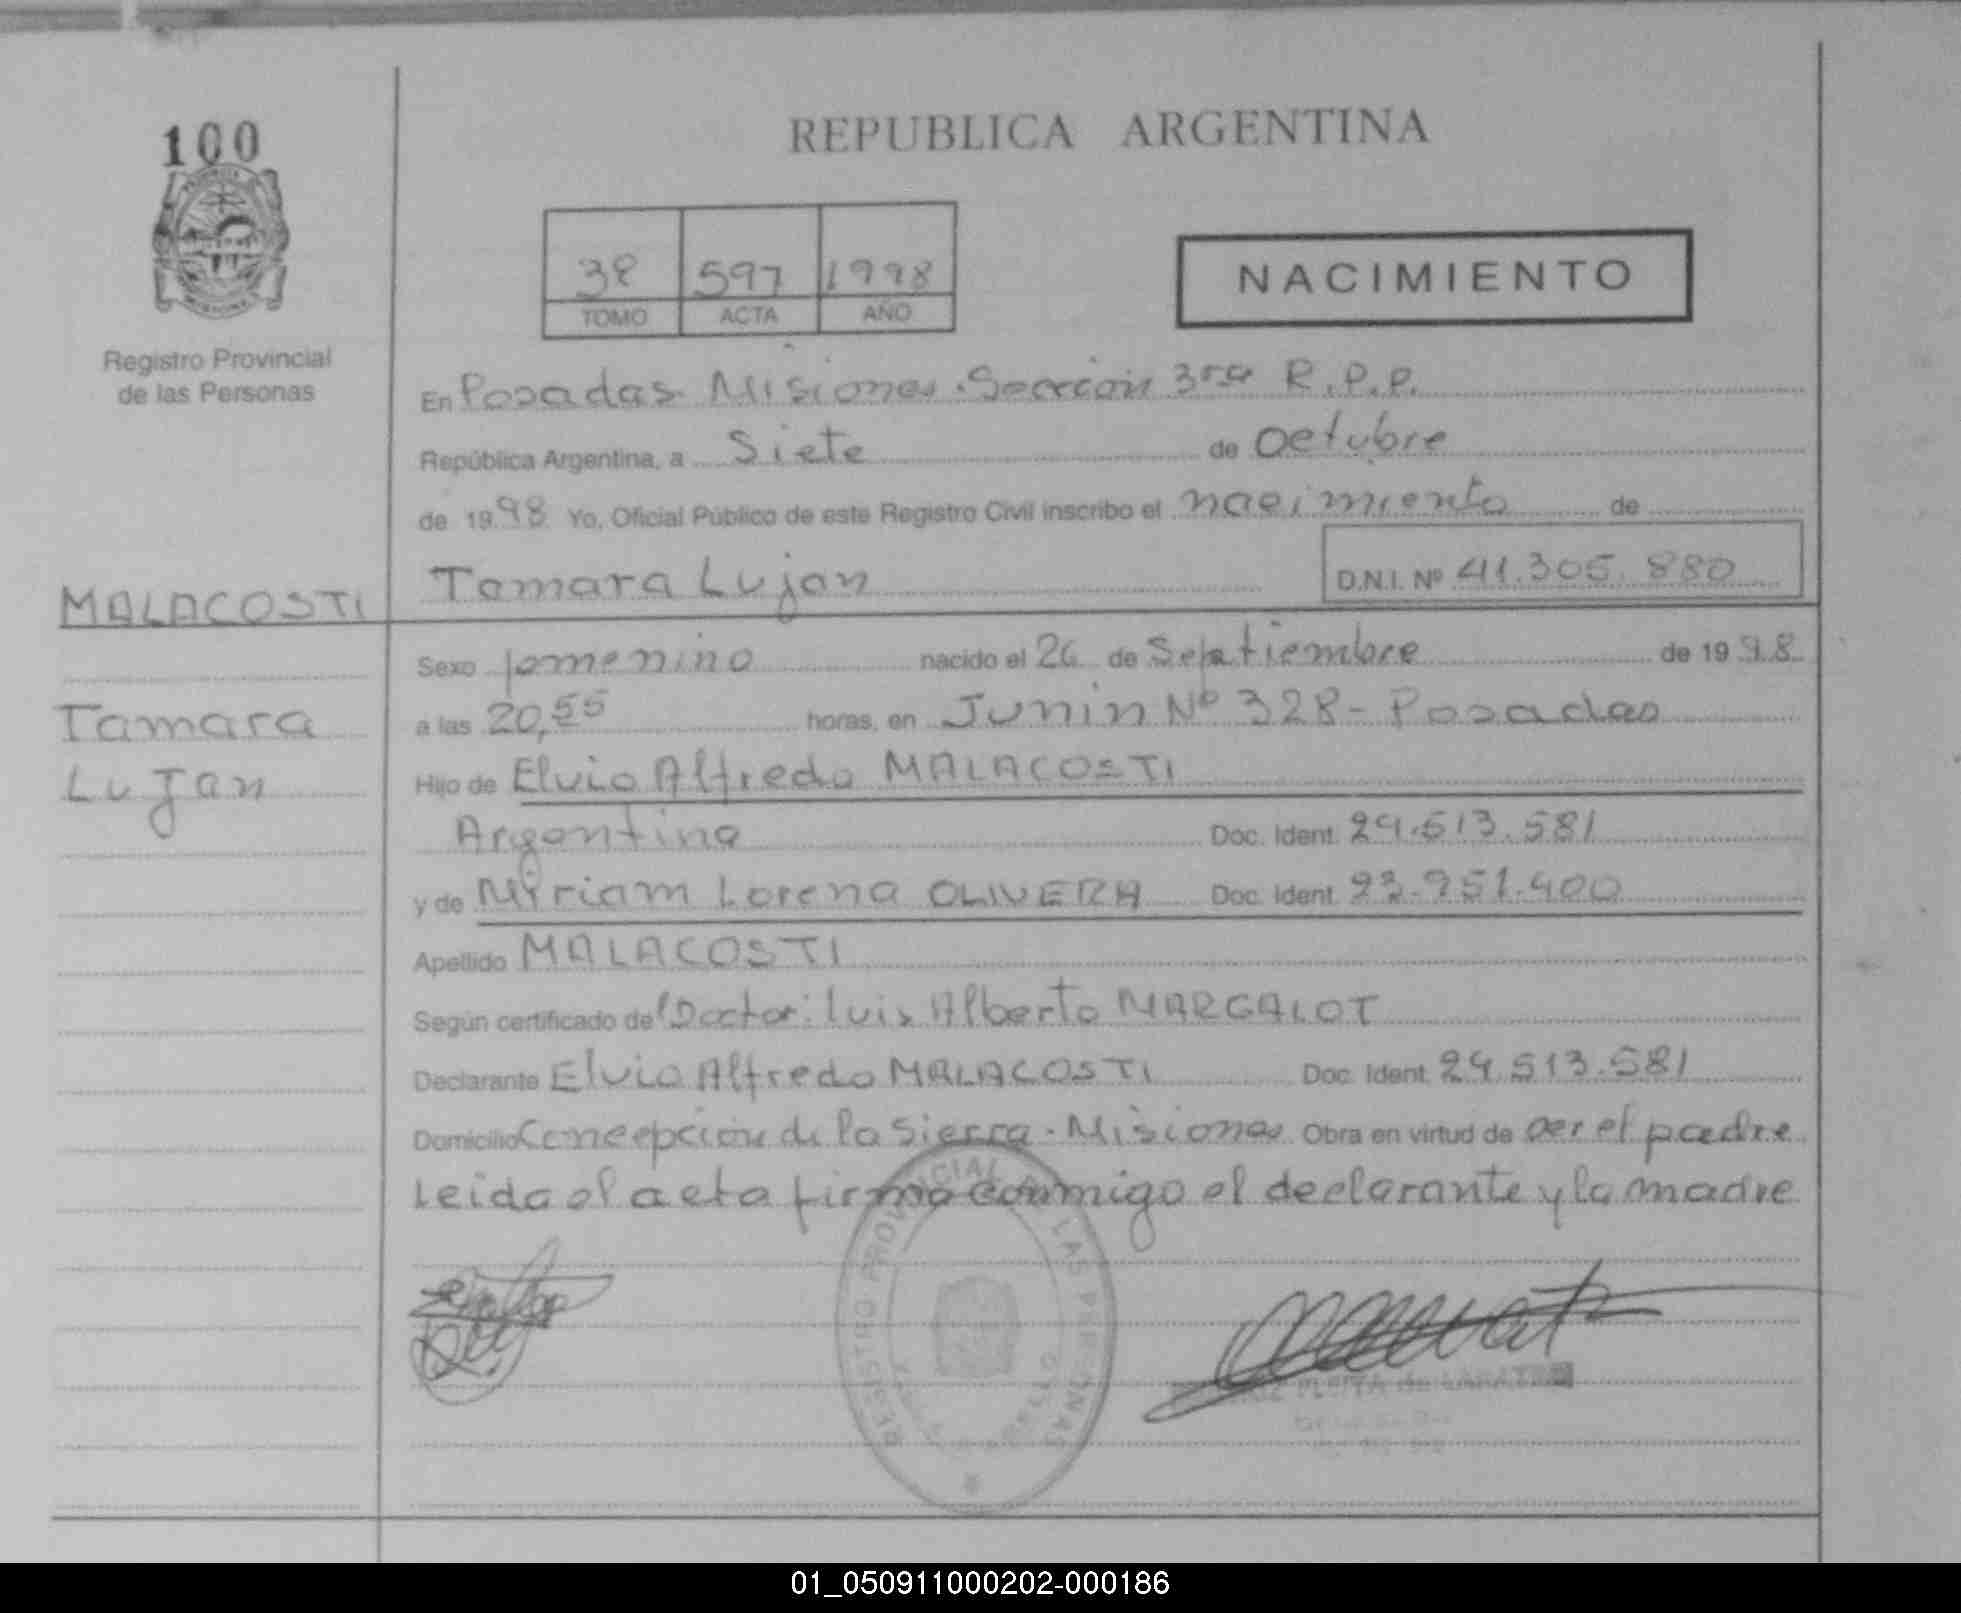 100
REPUBLICA ARGENTINA
38 597 1998
TOMO ACTA AÑO
NACIMIENTO
Registro Provincial
de las Personas
En Posadas Misiones. Sección 3ra R.P.P.
República Argentina, a Siete de Octubre
de 1998 Yo, Oficial Público de este Registro Civil inscribo el nacimiento de
Tamara Lujan D.N.I. Nº 41.305.880
MALACOSTI
Tamara
Lujan
Sexo femenino nacido el 26 de Septiembre de 1998
a las 20,55 horas, en Junin Nº 328 - Posadas
Hijo de Elvio Alfredo MALACOSTI
Argentino Doc. Ident. 24.513.581
y de Myriam Lorena OLIVERA Doc. Ident. 23.951.400
Apellido MALACOSTI
Según certificado del Doctor: Luis Alberto MARGALOT
Declarante Elvio Alfredo MALACOSTI Doc. Ident. 24.513.581
Domicilio Concepción de la Sierra - Misiones Obra en virtud de ser el padre
Leida el acta firma conmigo el declarante y la madre
REGISTRO PROVINCIAL DE LAS PERSONAS
PLEITA de
01_050911000202-000186